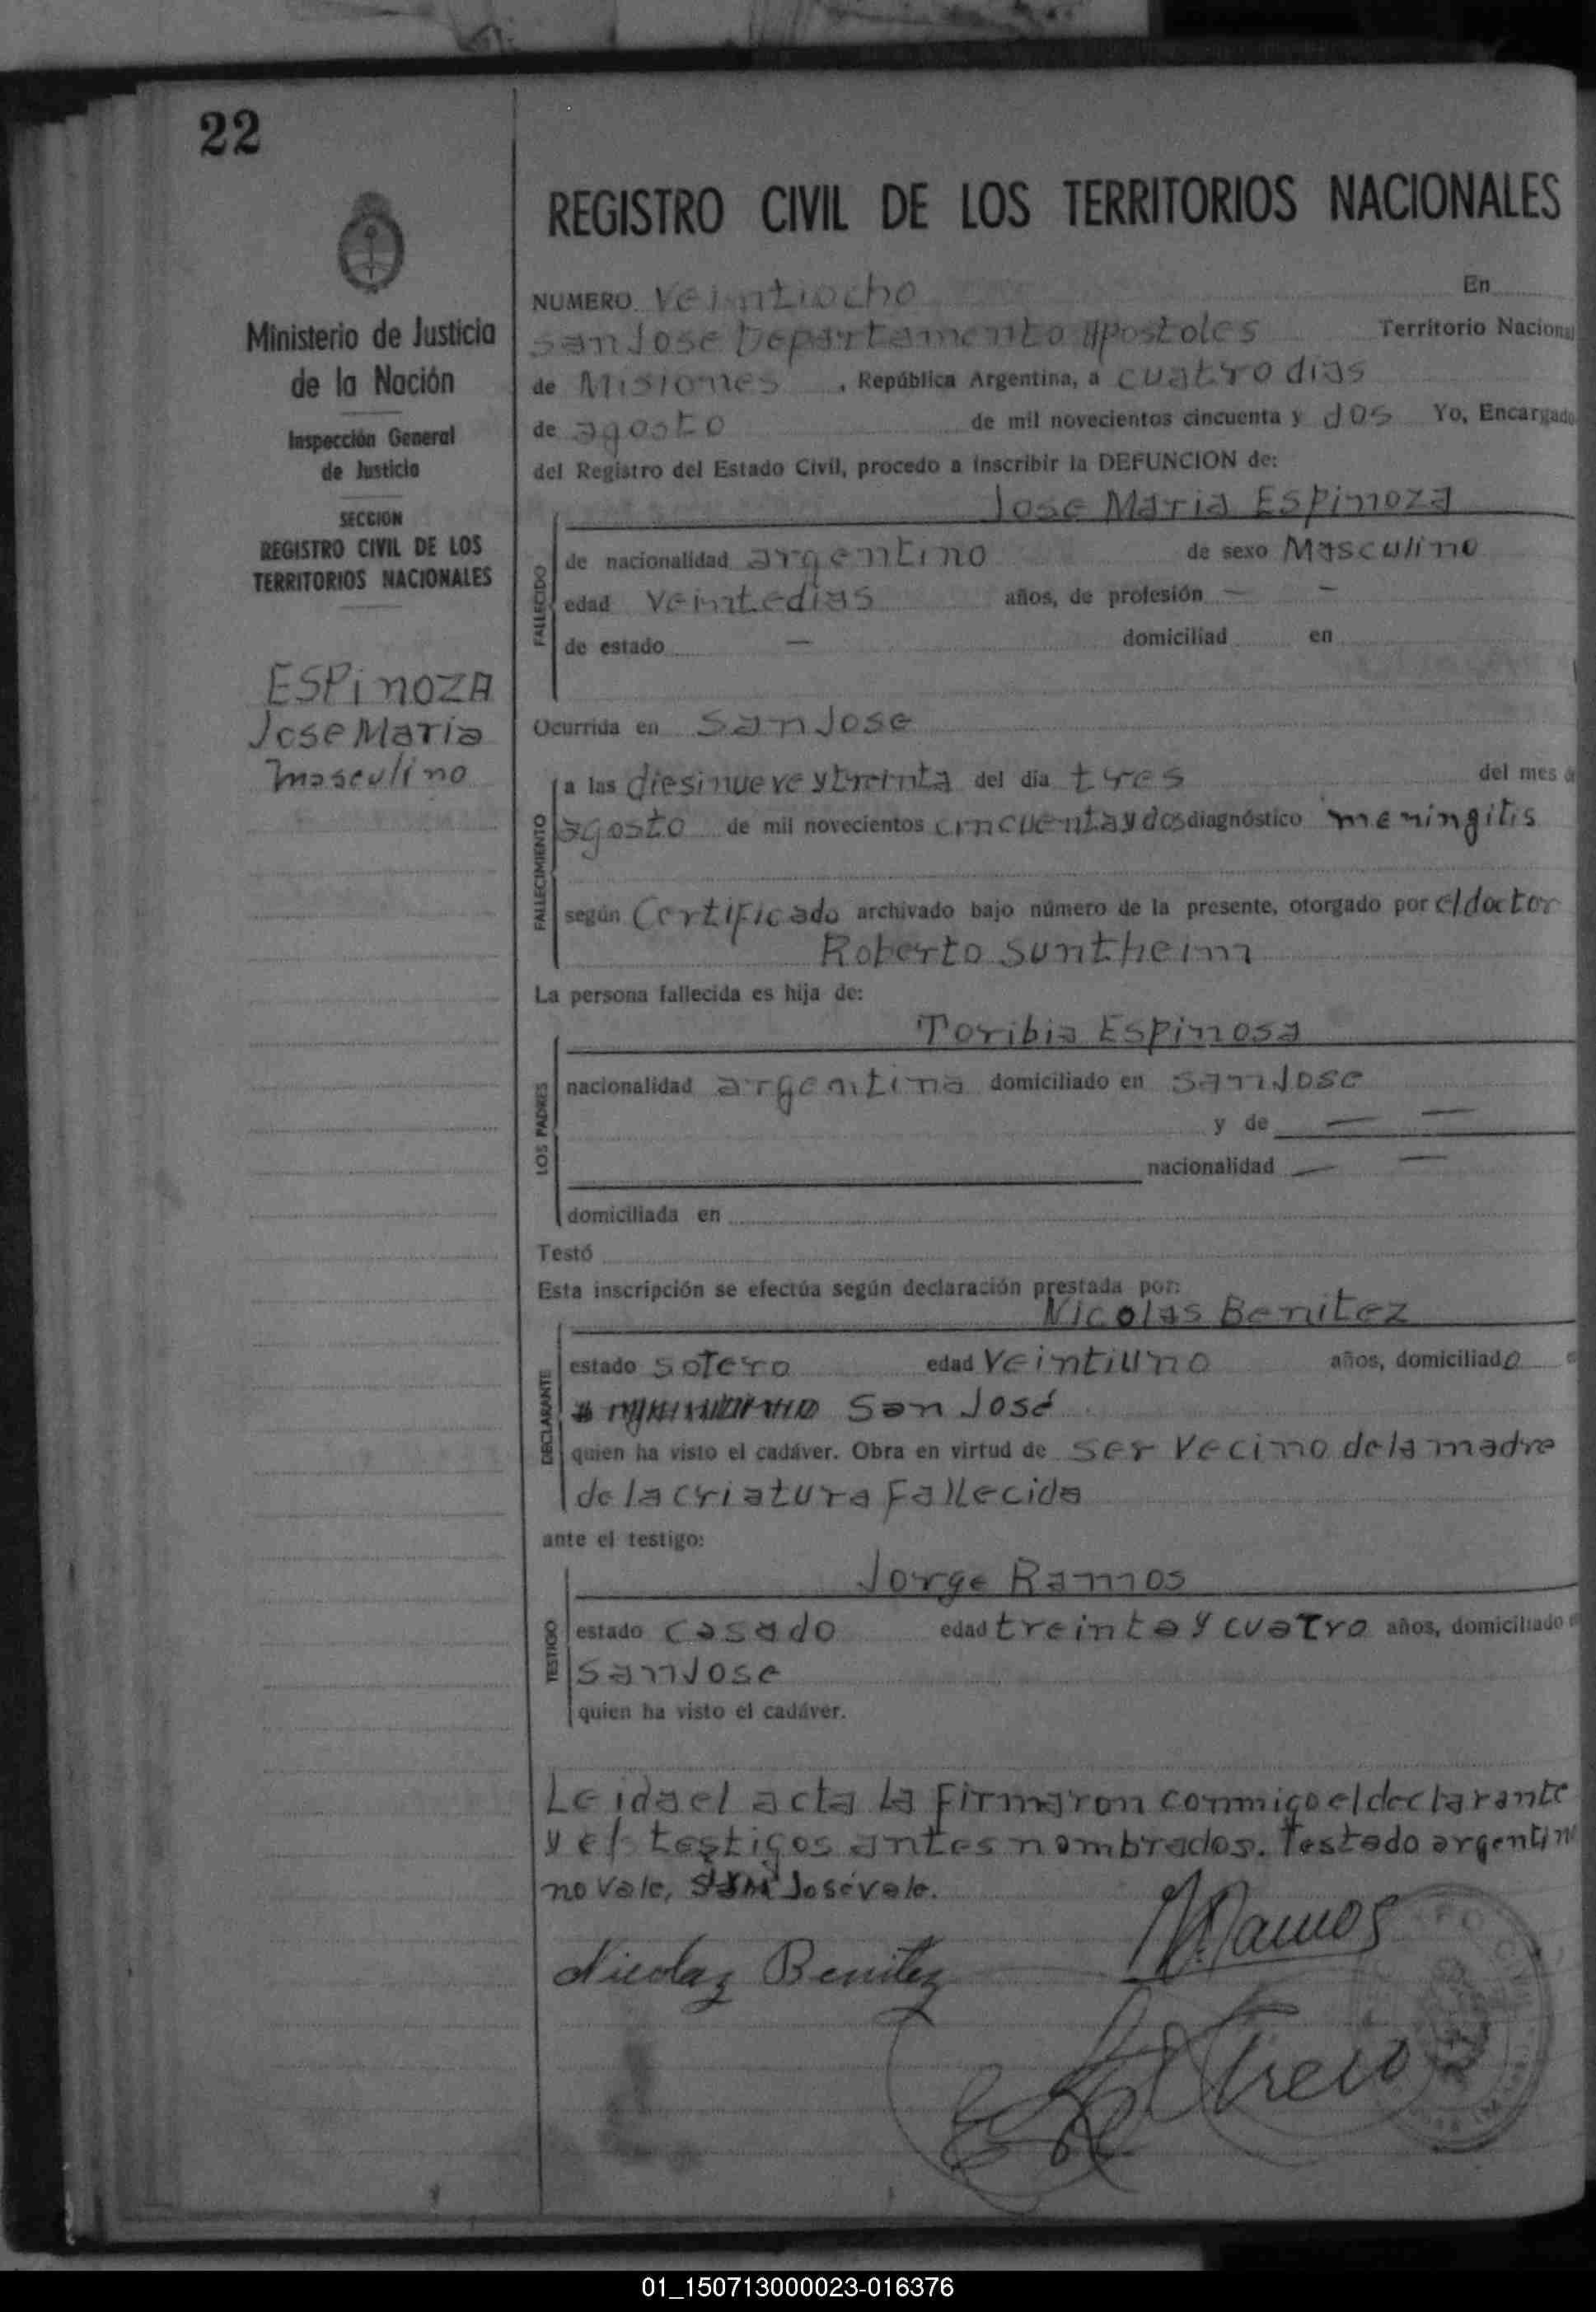 22
REGISTRO CIVIL DE LOS TERRITORIOS NACIONALES
Ministerio de Justicia
de la Nación
Inspección General
de Justicia
SECCION
REGISTRO CIVIL DE LOS
TERRITORIOS NACIONALES
ESPinozA
Jose Maria
masculino
NUMERO Veintiocho En
San Jose Departamento Apostoles Territorio Nacional
de Misiones , República Argentina, a cuatro dias
de agosto de mil novecientos cincuenta y dos Yo, Encargado
del Registro del Estado Civil, procedo a inscribir la DEFUNCION de:
Jose Maria Espinoza
FALLECIDO
de nacionalidad argentino de sexo Masculino
edad veinte dias años, de profesión — —
de estado — domiciliad en
Ocurrida en San Jose
FALLECIMIENTO
a las diesinueve y treinta del día tres del mes
agosto de mil novecientos cincuenta y dos diagnóstico meningitis
según Certificado archivado bajo número de la presente, otorgado por el doctor
Roberto Suntheim
La persona fallecida es hija de:
LOS PADRES
Toribia Espinosa
nacionalidad argentina domiciliado en San Jose
y de — —
nacionalidad — —
domiciliada en
Testó
Esta inscripción se efectúa según declaración prestada por:
DECLARANTE
Nicolas Benitez
estado sotero edad Veintiuno años, domiciliado
San José
quien ha visto el cadáver. Obra en virtud de ser vecino de la madre
de la criatura Fallecida
ante el testigo:
TESTIGO
Jorge Ramos
estado casado edad treinta y cuatro años, domiciliado
San Jose
quien ha visto el cadáver.
Leida el acta la firmaron conmigo el declarante
y el testigos antes nombrados. Testado argentin
no vale, San José vale.
Nicolaz Benitez
Ramos
01_150713000023-016376